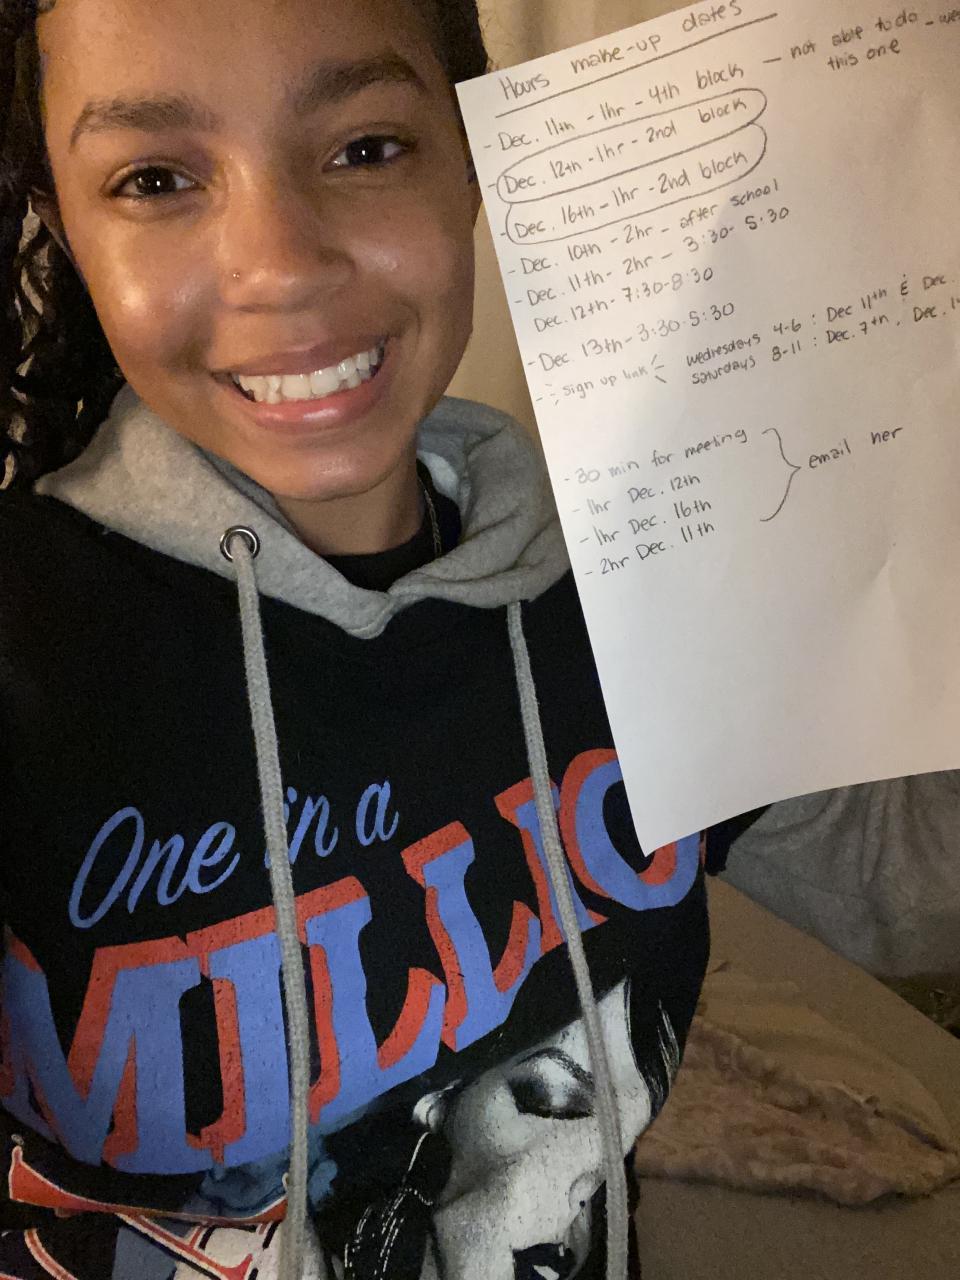 Hours make-up dates
- Dec. 11th - 1hr - 4th block — not able to do -
this one
- Dec. 12th - 1hr - 2nd block
- Dec. 16th - 1hr - 2nd block
- Dec. 10th - 2hr - after school
- Dec. 11th - 2hr - 3:30 - 5:30
Dec. 12th - 7:30-8:30
- Dec. 13th - 3:30-5:30
- sign up link wednesdays 4-6 : Dec 11th & Dec.
saturdays 8-11 : Dec. 7th, Dec.
- 30 min for meeting
- 1hr Dec. 12th
- 1hr Dec. 16th
- 2hr Dec. 11th
email her
One in a
MILLIO